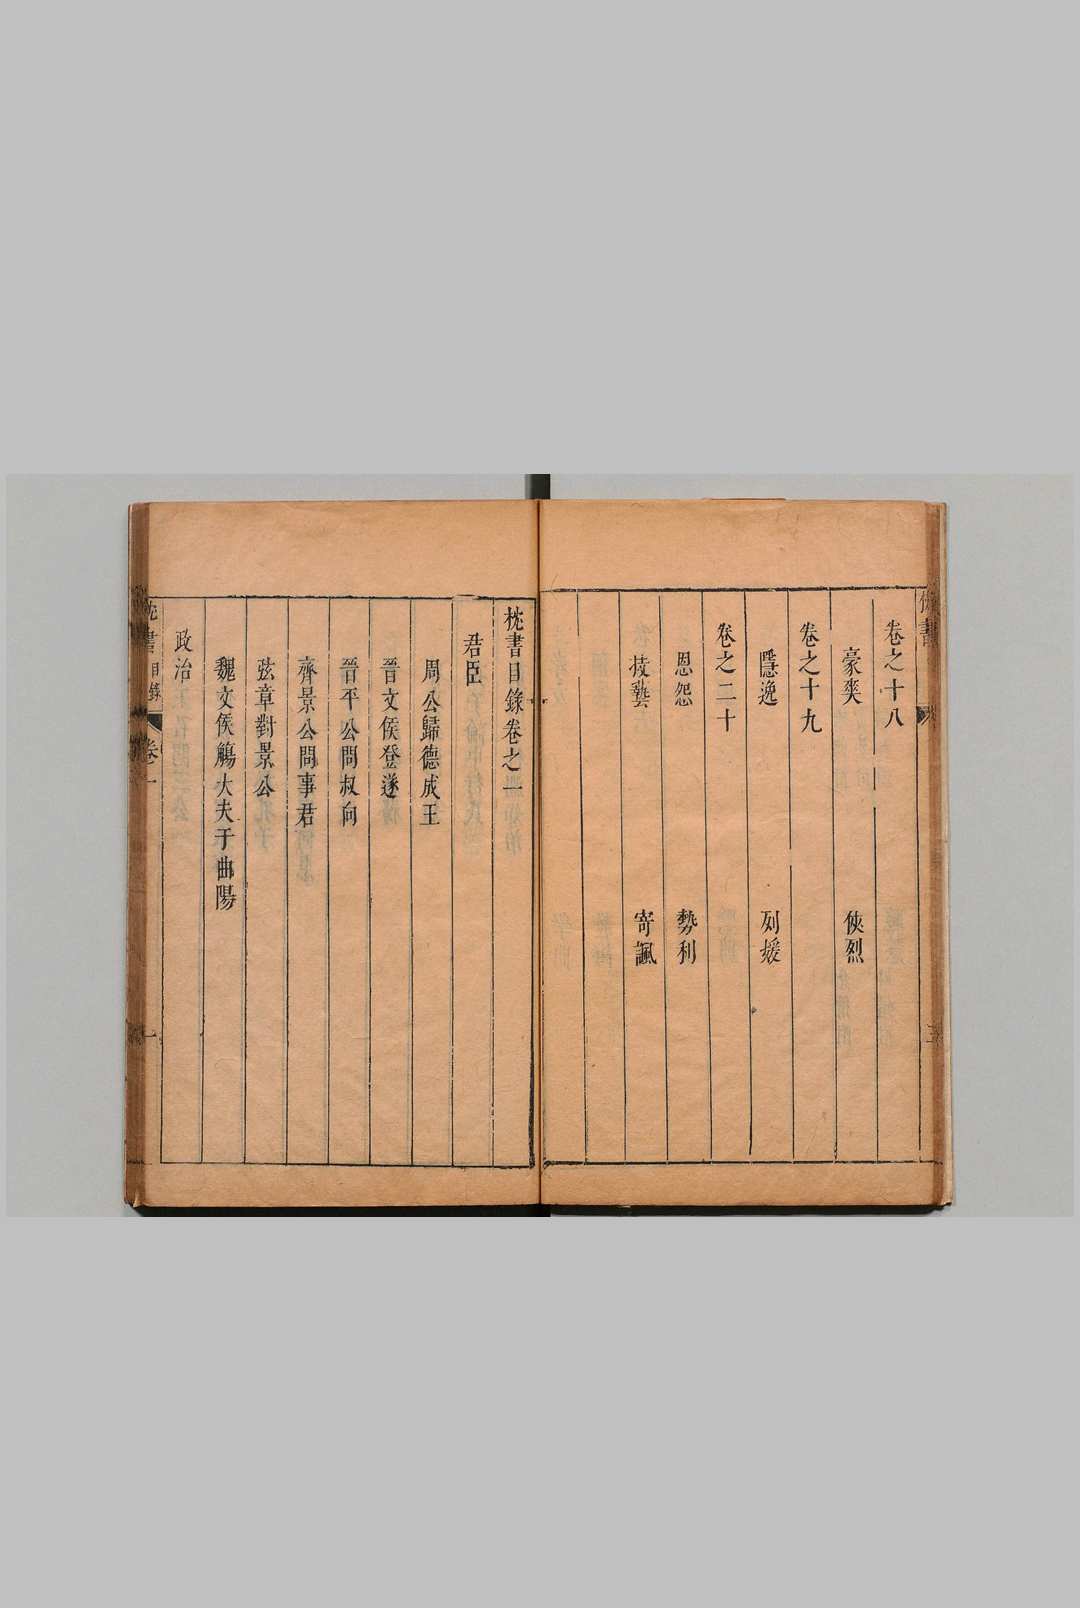 卷之十八
豪爽　俠烈
卷之十九
隱逸　列媛
卷之二十
恩怨　勢利
技藝　寄諷
枕書目錄卷之一
君臣
周公歸德成王
晉文侯登隧
晉平公問叔向
齊景公問事君
弦章對景公
魏文侯觴大夫于曲陽
政治
枕書　目錄　卷一　一